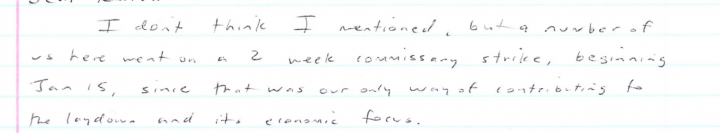 I don't think I mentioned, but a number of
us here went on a 2 week commissary strike, beginning
Jan 15, since that was our only way of contributing to
the laydown and its economic focus.